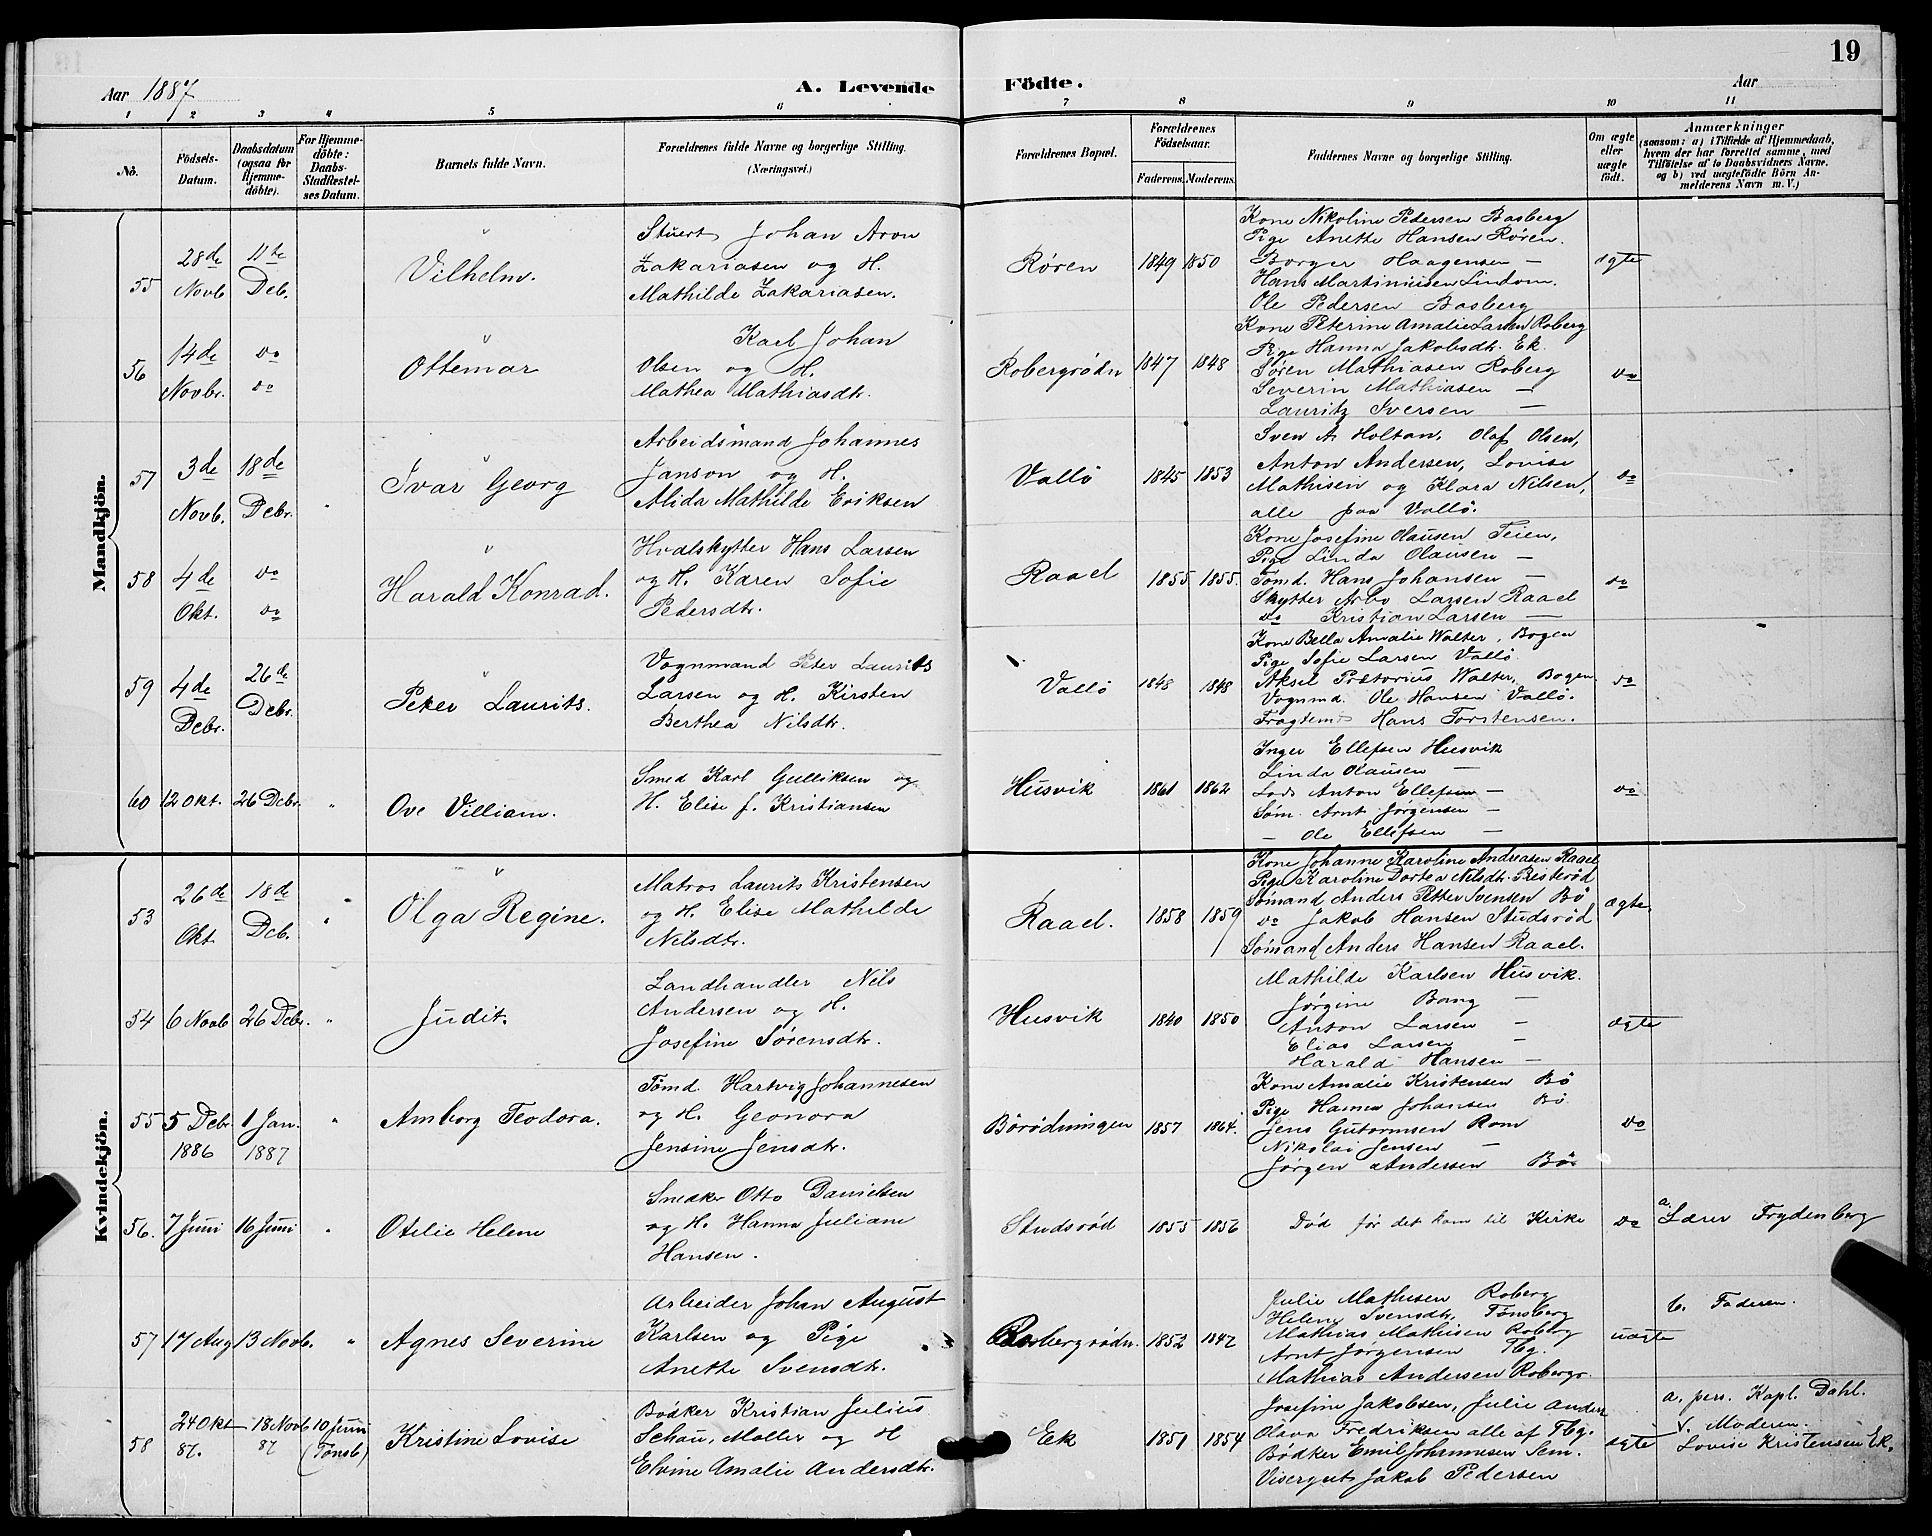 19
Aar 1887
A. Levende Födte.
Aar
1 2 3 4 5 6 7 8 9 10 11
No.
Födsels-Datum.
Daabsdatum (ogsaa for Hjemmedöbte).
For Hjemmedöbte: Daabs-Stadfæstelses Datum.
Barnets fulde Navn.
Forældrenes fulde Navne og borgerlige Stilling. (Næringsvei.)
Forældrenes Bopæl.
Forældrenes Födselsaar.
Faderens. Moderens.
Faddernes Navne og borgerlige Stilling.
Om ægte eller uægte födt.
Anmærkninger
(saasom: a) i Tilfælde af Hjemmedaab,
hvem der har forrettet samme, med
Tilföielse af to Daabsvidners Navne,
og b) ved uægtefödte Börn Anmelderens Navn m. V.)
Mandkjön.
55
28de Novb
11te Deb.
"
Vilhelm.
Stuert Johan Aron
Zakariasen og H.
Mathilde Zakariasen.
Røren
1849 1850
Kone Nikoline Pedersen Basberg
Pige Anette Hansen Røren.
Borger Haagensen —
Hans Martiniusen Lindom.
Ole Pedersen Basberg
ægte
56
14de Novbr.
do do
"
Ottemar
Karl Johan
Olsen og H.
Mathea Mathiasdtr.
Robergrødn
1847 1848
Kone Peterine Amalie Larsen Roberg
Pige Hanna Jakobsdtr. Ek.
Søren Mathiasen Roberg
Severin Mathiasen —
Lauritz Iversen —
do
57
3de Novb.
18de Debr.
"
Ivar Georg
Arbeidsmand Johannes
Janson og H.
Alida Mathilde Eriksen
Vallö
1845 1853
Sven A. Holtan, Olaf Olsen,
Anton Andersen, Lovise
Mathisen og Klara Nilsen,
alle paa Vallö.
do
58
4de Okt.
do do
"
Harald Konrad.
Hvalskytter Hans Larsen
og H. Karen Sofie
Pedersdtr.
Raael
1855 1855.
Kone Josefine Olausen Teien,
Pige Linda Olausen —
Tömd. Hans Johansen —
Skytter Arbo Larsen Raael
do Kristian Larsen —
do
59
4de Debr.
26de Debr.
"
Peter Laurits.
Vognmand Peter Laurits
Larsen og H. Kirsten
Berthea Nilsdtr.
Vallö
1848 1848
Kone Bella Amalie Walter, Bogen
Pige Sofie Larsen Vallö.
Aksel Prætorius Walter, Bogen
Vognmd. Ole Hansen Vallö.
Fragtem Hans Torstensen.
do
60
12 Okt.
26 Debr.
"
Ove Villiam.
Smed Karl Gulliksen og
H. Elise f. Kristiansen
Husvik
1861 1862
Inger Ellefsen Husvik
Linda Olausen —
Lods Anton Ellefsen —
Söm. Arnt Jörgensen —
— Ole Ellefsen —
do
Kvindekjön.
53
26de Okt
18de Deb.
"
Olga Regine.
Matros Laurits Kristensen
og H. Elise Mathilde
Nilsdtr.
Raael.
1858 1859
Kone Johanne Karoline Andreasen Raael
Pige Karoline Dortea Nilsdtr. Bisterød
Sømand Anders Petter Svensen Bö
do Jakob Hansen Studsrød
Sømand Anders Hansen Raael.
ægte
54
6 Novb
26 Debr.
"
Judit.
Landhandler Nils
Andersen og H.
Josefine Sørensdtr.
Husvik
1840 1850
Mathilde Karlsen Husvik.
Jörgine Bang —
Anton Larsen —
Elias Larsen —
Harald Hansen —
ægte
55
5 Debr. 1886
1 Jan. 1887
"
Amborg Teodora.
Tömd. Hartvig Johannesen
og H. Geonora
Jensine Jensdtr.
Börödningen
1857 1864.
Kone Amalie Kristensen Bö
Pige Hanna Johansen Bö
Jens Gutormsen Rom
Nikolai Jensen —
Jörgen Andersen Bö
do
56.
7 Juni
16 Juni
"
Otilie Helene
Snedker Otto Danielsen
og H. Hanna Juliane
Hansen.
Studsrød
1855 1856
Död før det kom til Kirke
do
a. Lærer Frydenberg
57
17 Aug
13 Novb.
"
Agnes Severine
Arbeider Johan August
Karlsen og Pige
Anette Svensdtr.
Robergrødn.
1852 1847
Julie Mathisen Roberg
Helene Svensdtr. Tønsberg
Mathias Mathisen Roberg
Arnt Jørgensen Tbg.
Mathias Andersen Robergr.
uægte
b. Faderen.
58
24 Okt 87.
18 Novb 87
10 Juni (Tønsb)
Kristine Lovise
Bödker Kristian Julius
Schau, Møller og H
Elvine Amalie Andersdtr.
Ek
1851 1854
Josefine Jakobsen, Julie Anders
Olava Fredriksen alle af Tbg.
Bödker Emil Johannesen Sem.
Visergut Jakob Pedersen
ægte
a. pers. Kapl. Dahl.
V. Moderen.
Lovise Kristensen Ek.